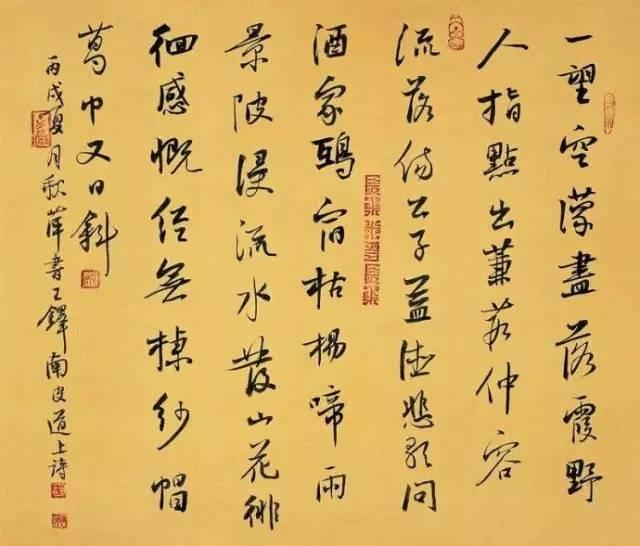 一望空濛盡落霞野
人指點出蒹葭仲容
流落傷公子益德悲歌問
酒家鵶宿枯楊啼雨
景陂浸流水發山花徘
徊感慨經無棟紗帽
葛巾又日斜
丙戌夏月秋萍書王鐸南皮道上詩